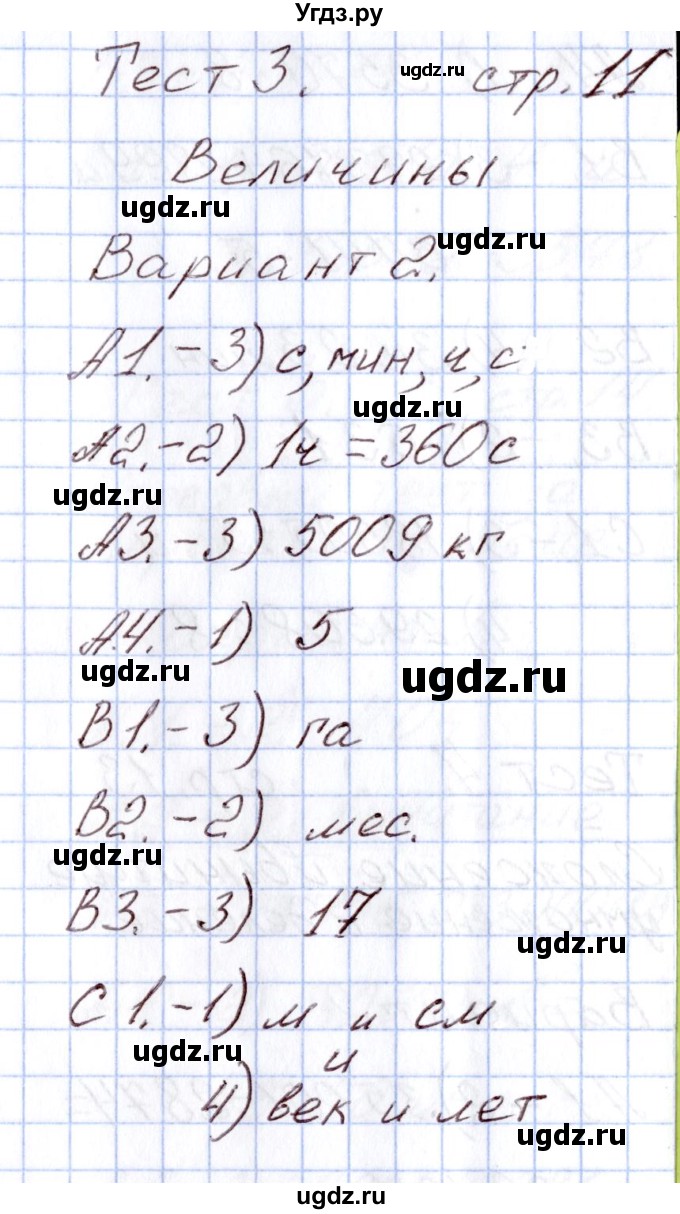 Угдз.ру
Тест 3. ugdz.ru стр. 11
Величины
ugdz.ru
ugdz.ru
Вариант 2.
А1. - 3) с, мин, ч, с
ugdz.ru
А2. - 2) 1ч = 360 с
ugdz.ru
А3. - 3) 5009 кг
А4. - 1) 5
ugdz.ru
ugdz.ru
В1. - 3) га
В2. - 2) мес.
ugdz.ru
В3. - 3) 17
ugdz.ru
С1. - 1) м и см
ugdz.ru
и
4) век и лет
ugdz.ru
ugdz.ru